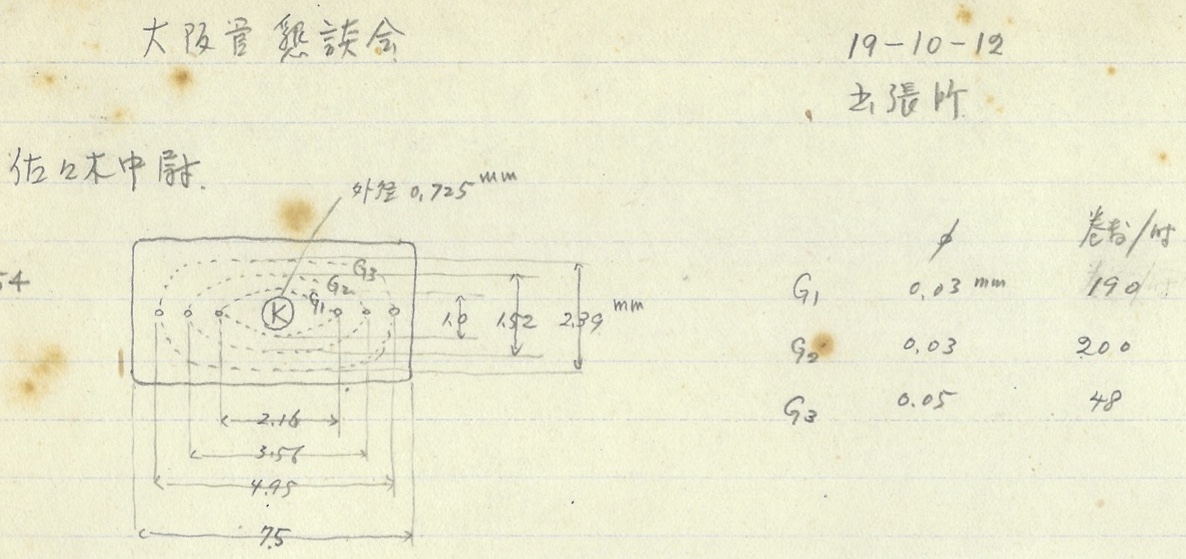 大阪管懇談会
19-10-12
出張所
佐々木中尉.
外径 0.725 mm
54
G3
G2
G1
K
1.0 1.52 2.39 mm
2.16
3.56
4.95
7.5
φ 巻数/吋
G1 0.03 mm 190
G2 0.03 200
G3 0.05 48